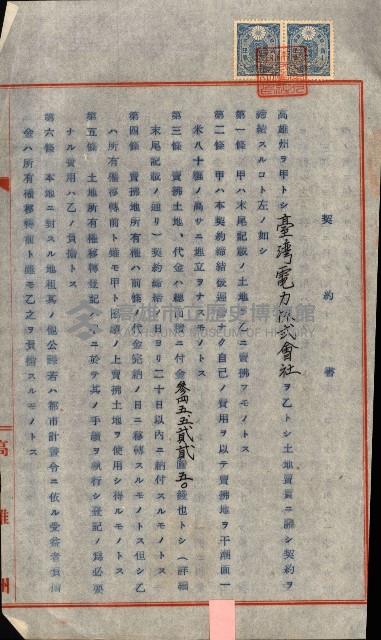 契約書
高雄州ヲ甲トシ臺灣電力株式會社ヲ乙トシ土地賣買ニ關シ契約ヲ
締結スルコト左ノ如シ
第一條 甲ハ末尾記載ノ土地ヲ乙ニ賣拂フモノトス
第二條 甲ハ本契約締結後遲ク自己ノ費用ヲ以テ賣拂地ヲ干潮面
米八十 ノ高サニ埋立ヲナスモノトス
第三條 賣拂土地ノ代金ハ 付金參四五、五貳貳五〇圓 錢也トシ(詳細
末尾記載ノ通リ)契約締結ノ日ヨリ二十日以內ニ納付スルモノトス
第四條 賣拂地所有權ハ前條ノ代金完納ノ日ニ移轉スルモノトス但シ乙
ハ所有權移轉前ト雖モ甲ト協議ノ上賣拂土地ヲ使用シ得ルモノトス
第五條 土地所有權移轉登記ハ甲ニ於テ其ノ手續ヲ執行シ登記ノ爲必要
ナル費用ハ乙ノ負擔トス
第六條 本地ニ對スル地租其ノ他公課若ハ都市計畫令ニ依ル受益者負擔
金ハ所有權移轉前ト雖モ乙之ヲ負擔スルモノトス
高雄州
高雄市立歷史博物館